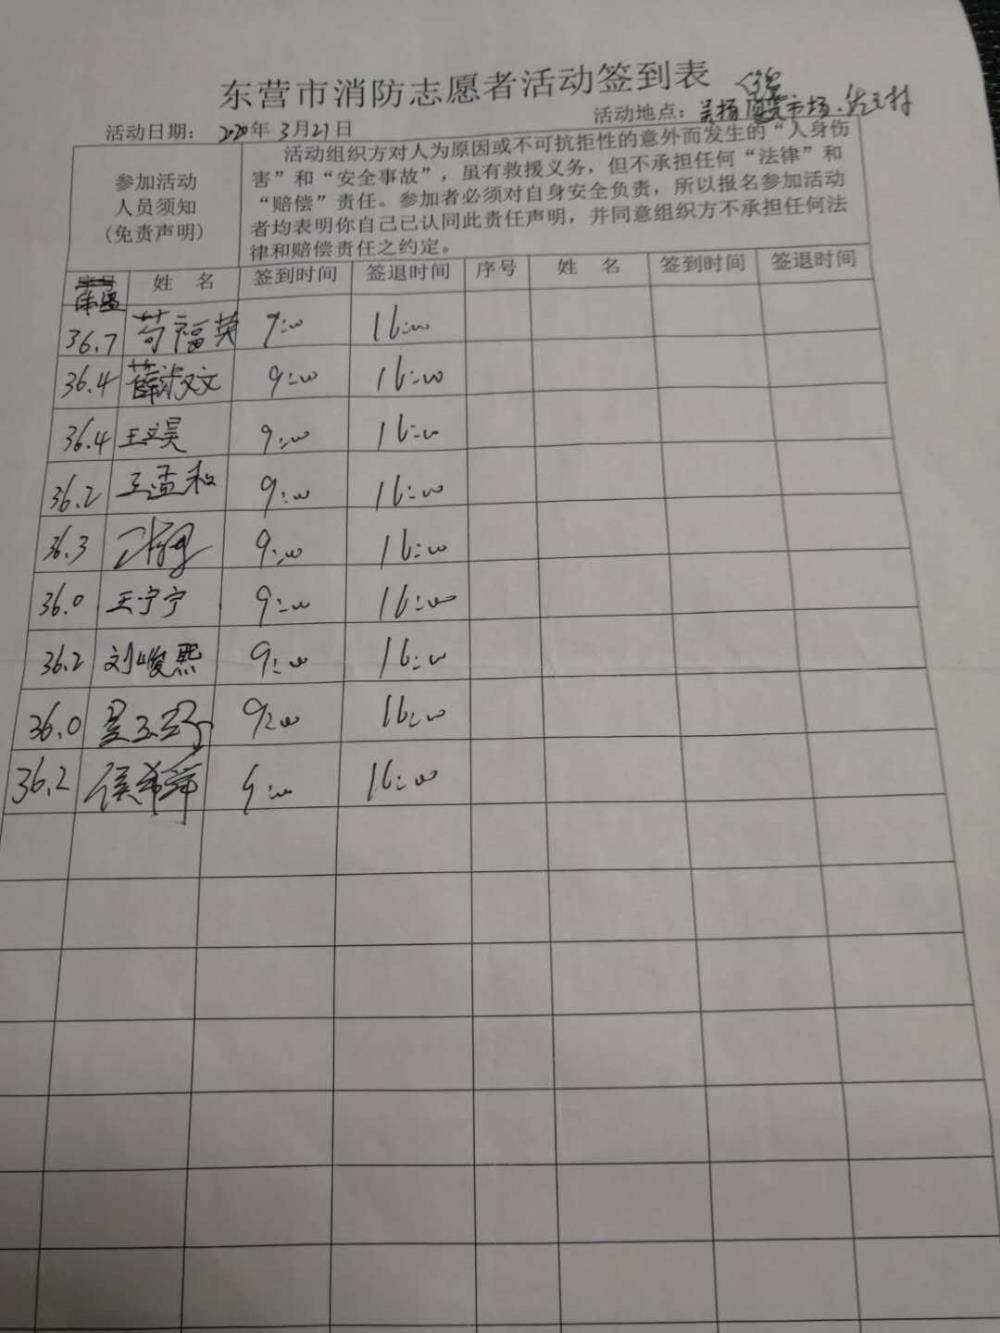 东营市消防志愿者活动签到表
活动日期： 2020年 3月21日
活动地点： 市场.
参加活动
人员须知
(免责声明)
活动组织方对人为原因或不可抗拒性的意外而发生的“人身伤
害”和“安全事故”，虽有救援义务，但不承担任何“法律”和
“赔偿”责任。参加者必须对自身安全负责，所以报名参加活动
者均表明你自己已认同此责任声明，并同意组织方不承担任何法
律和赔偿责任之约定。
序号 姓 名 签到时间 签退时间 序号 姓 名 签到时间 签退时间
体温
36.7 苟福英 9:00 16:00
36.4 薛淑文 9:00 16:00
36.4 王文昊 9:00 16:00
36.2 王孟和 9:00 16:00
36.3 9:00 16:00
36.0 王宁宁 9:00 16:00
36.2 刘峻熙 9:00 16:00
36.0 9:00 16:00
36.2 侯希舜 9:00 16:00